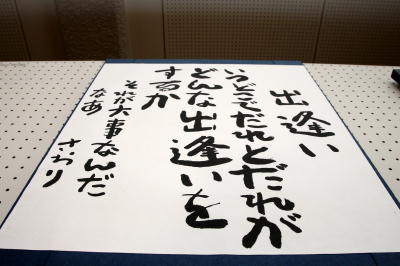 出逢い
いつどこでだれとだれが
どんな出逢いを
するか
それが大事なんだ
なあ
さおり